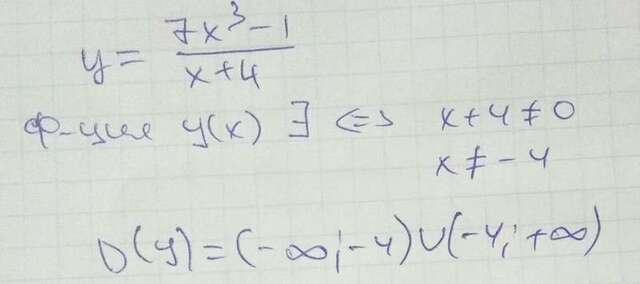 y = (7x³ - 1)/(x + 4)
ф-ция y(x) ∃ <=> x + 4 ≠ 0
x ≠ -4
D(y) = (-∞; -4) ∪ (-4; +∞)